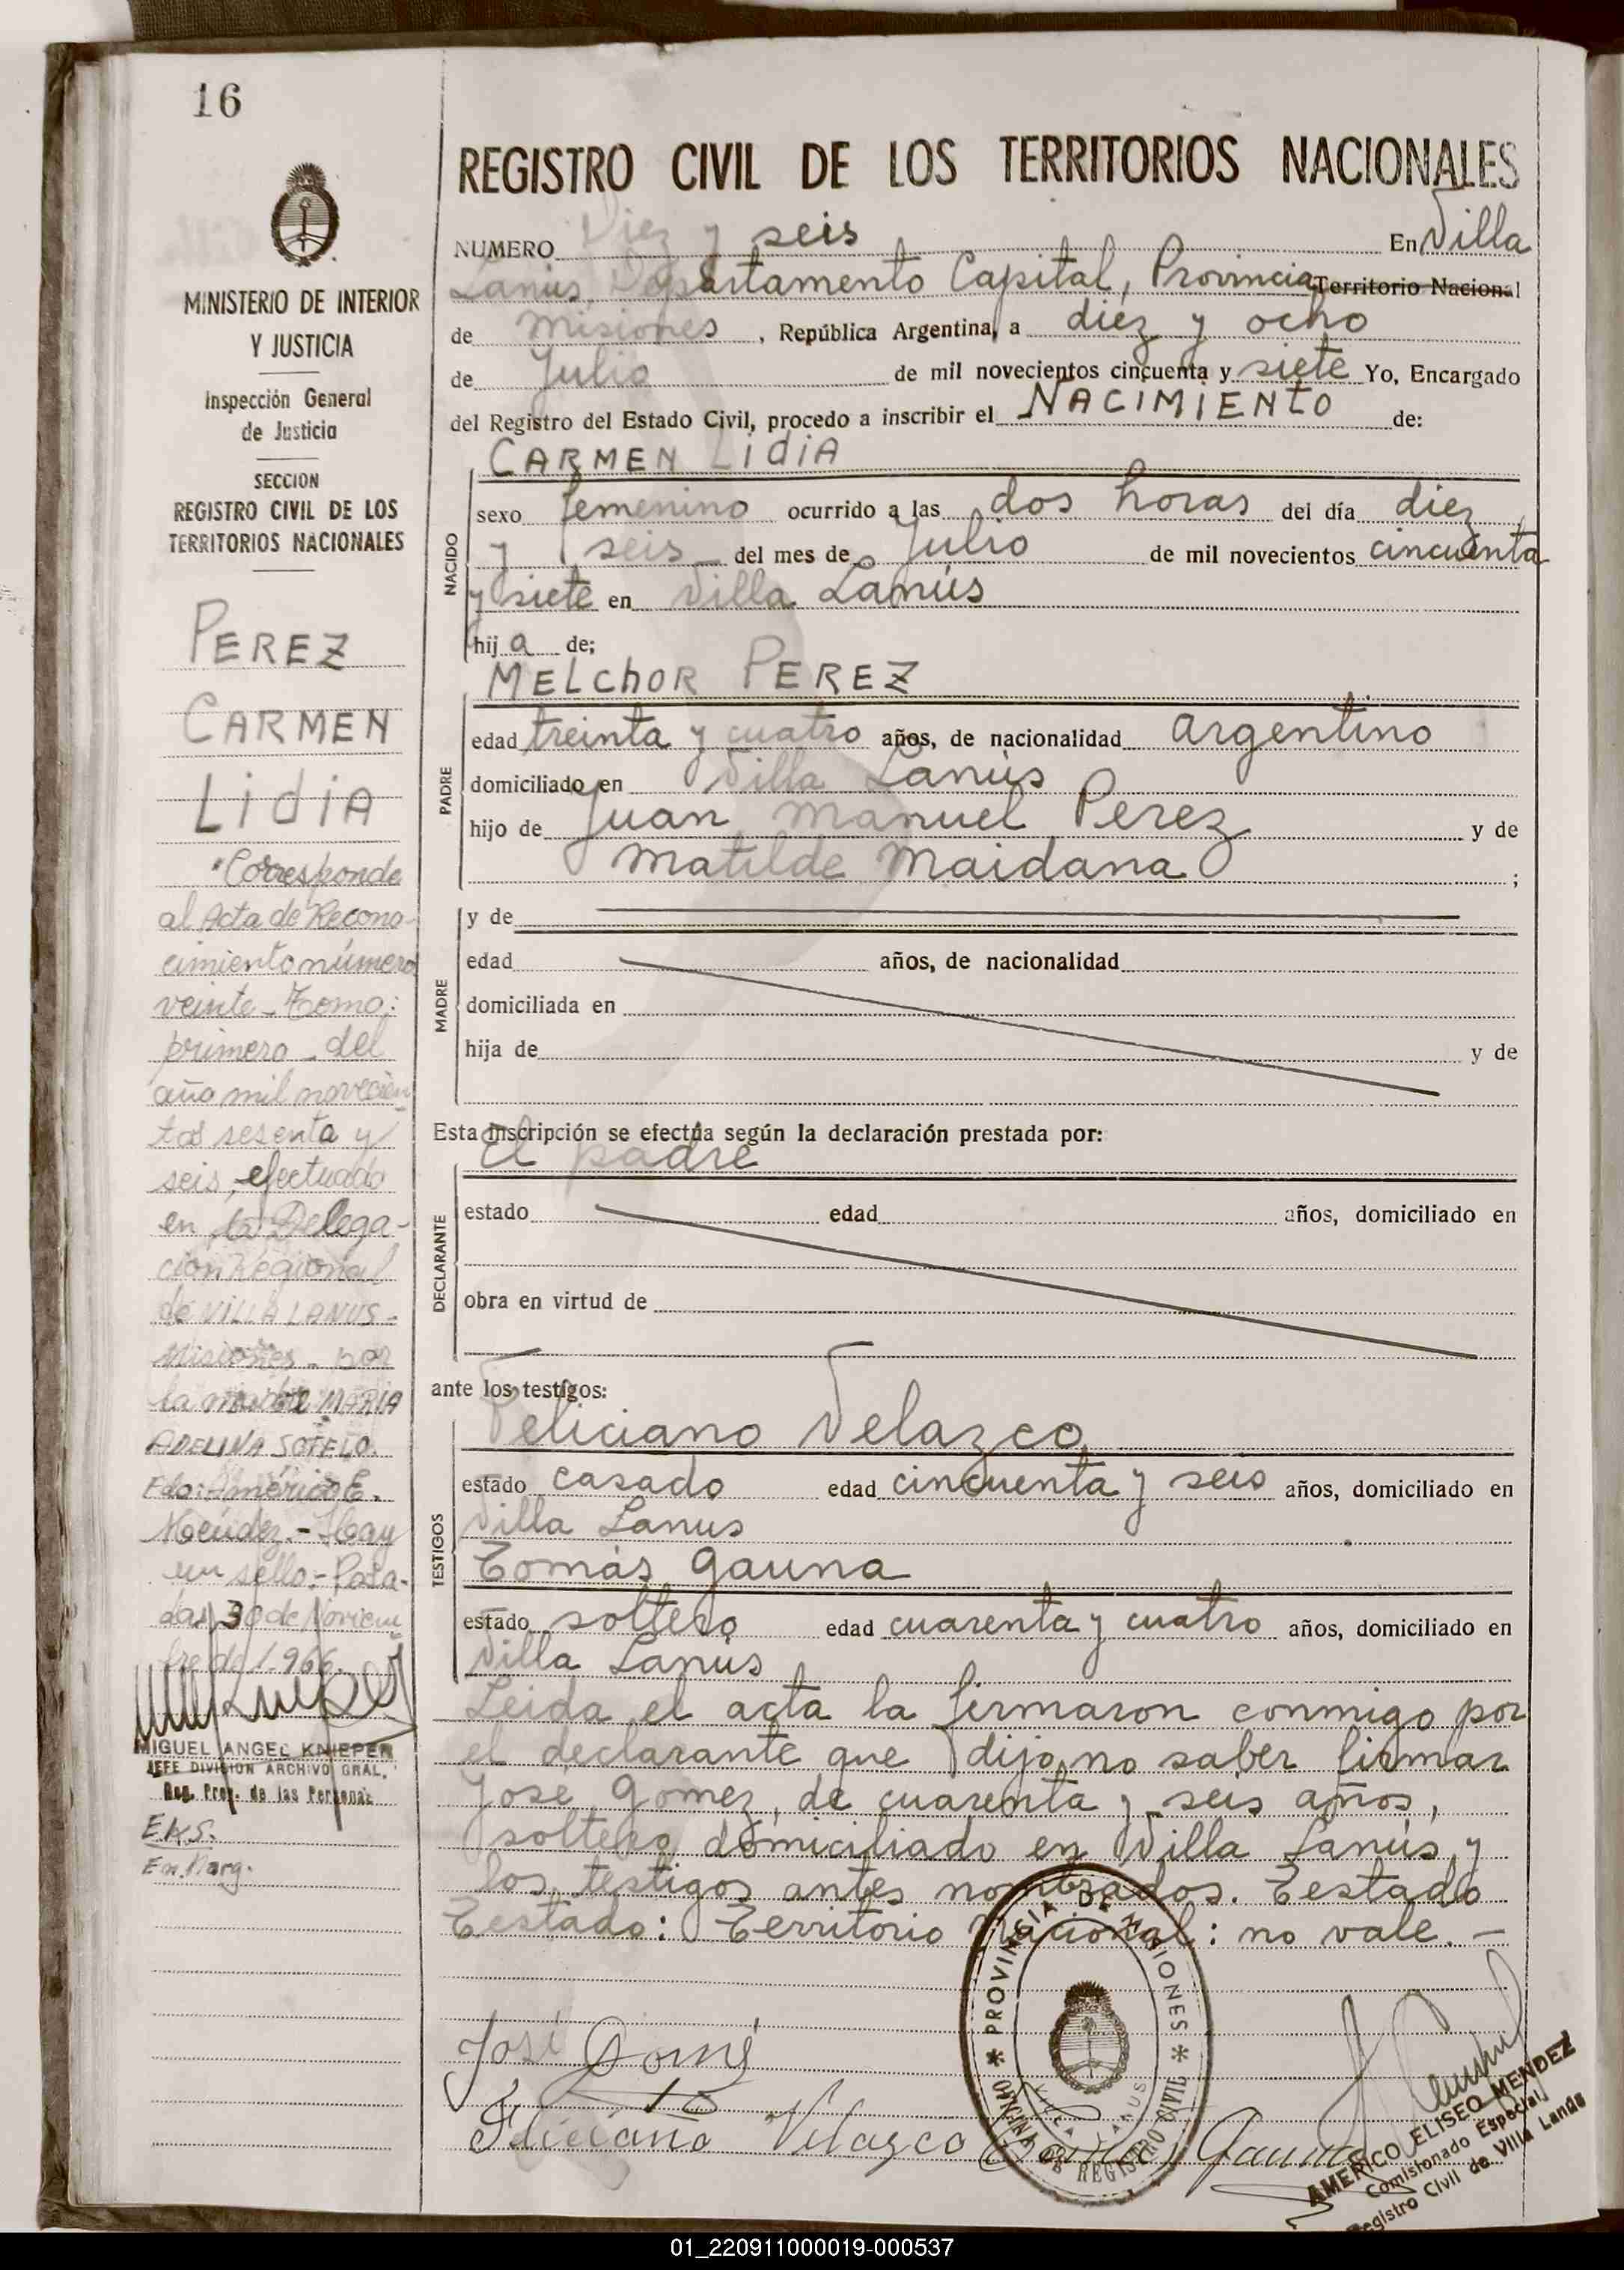 16
MINISTERIO DE INTERIOR
Y JUSTICIA
Inspección General
de Justicia
SECCION
REGISTRO CIVIL DE LOS
TERRITORIOS NACIONALES
PEREZ
CARMEN
LidiA
"Corresponde
al Acta de Recono-
cimiento número
veinte - Tomo:
primero - del
año mil novecien
tos sesenta y
seis, efectuado
en la Delega-
ción Regional
de VILLA LANUS -
Misiones - por
la madre MARIA
ADELINA SOTELO.
Fdo: Américo E.
Méndez. - Hay
un sello. - Posa-
das, 30 de Noviem
bre de 1.966.
MIGUEL ANGEL KNIEPER
JEFE DIVISION ARCHIVO GRAL.
Reg. Prov. de las Personas
E.K.S.
En. Marg.
REGISTRO CIVIL DE LOS TERRITORIOS NACIONALES
NUMERO Diez y seis En Villa
Lanús, Departamento Capital, Provincia Territorio Nacional
de Misiones, República Argentina, a diez y ocho
de Julio de mil novecientos cincuenta y siete Yo, Encargado
del Registro del Estado Civil, procedo a inscribir el NACIMIENTO de:
CARMEN LidiA
NACIDO
sexo femenino ocurrido a las dos horas del día diez
y seis del mes de Julio de mil novecientos cincuenta
y siete en Villa Lanús
hija de;
MELChOR PEREZ
PADRE
edad treinta y cuatro años, de nacionalidad argentino
domiciliado en Villa Lanús
hijo de Juan Manuel Perez y de
Matilde Maidana ;
MADRE
y de
edad años, de nacionalidad
domiciliada en
hija de y de
Esta inscripción se efectúa según la declaración prestada por:
El padre
DECLARANTE
estado edad años, domiciliado en
obra en virtud de
ante los testigos:
Feliciano Velazco
TESTIGOS
estado casado edad cincuenta y seis años, domiciliado en
Villa Lanus
Tomás Gauna
estado soltero edad cuarenta y cuatro años, domiciliado en
Villa Lanús
Leida el acta la firmaron conmigo por
el declarante que dijo no saber firmar
José Gomez, de cuarenta y seis años,
soltero domiciliado en Villa Lanús y
los testigos antes nombrados. Testado
Testado: Territorio Nacional: no vale. -
José Gomez
Feliciano Velazco Tomás Gauna
PROVINCIA DE MISIONES
OFICINA DE REGISTRO CIVIL
VILLA LANUS
AMERICO ELISEO MENDEZ
Comisionado Especial
Registro Civil de Villa Lanús
01_220911000019-000537